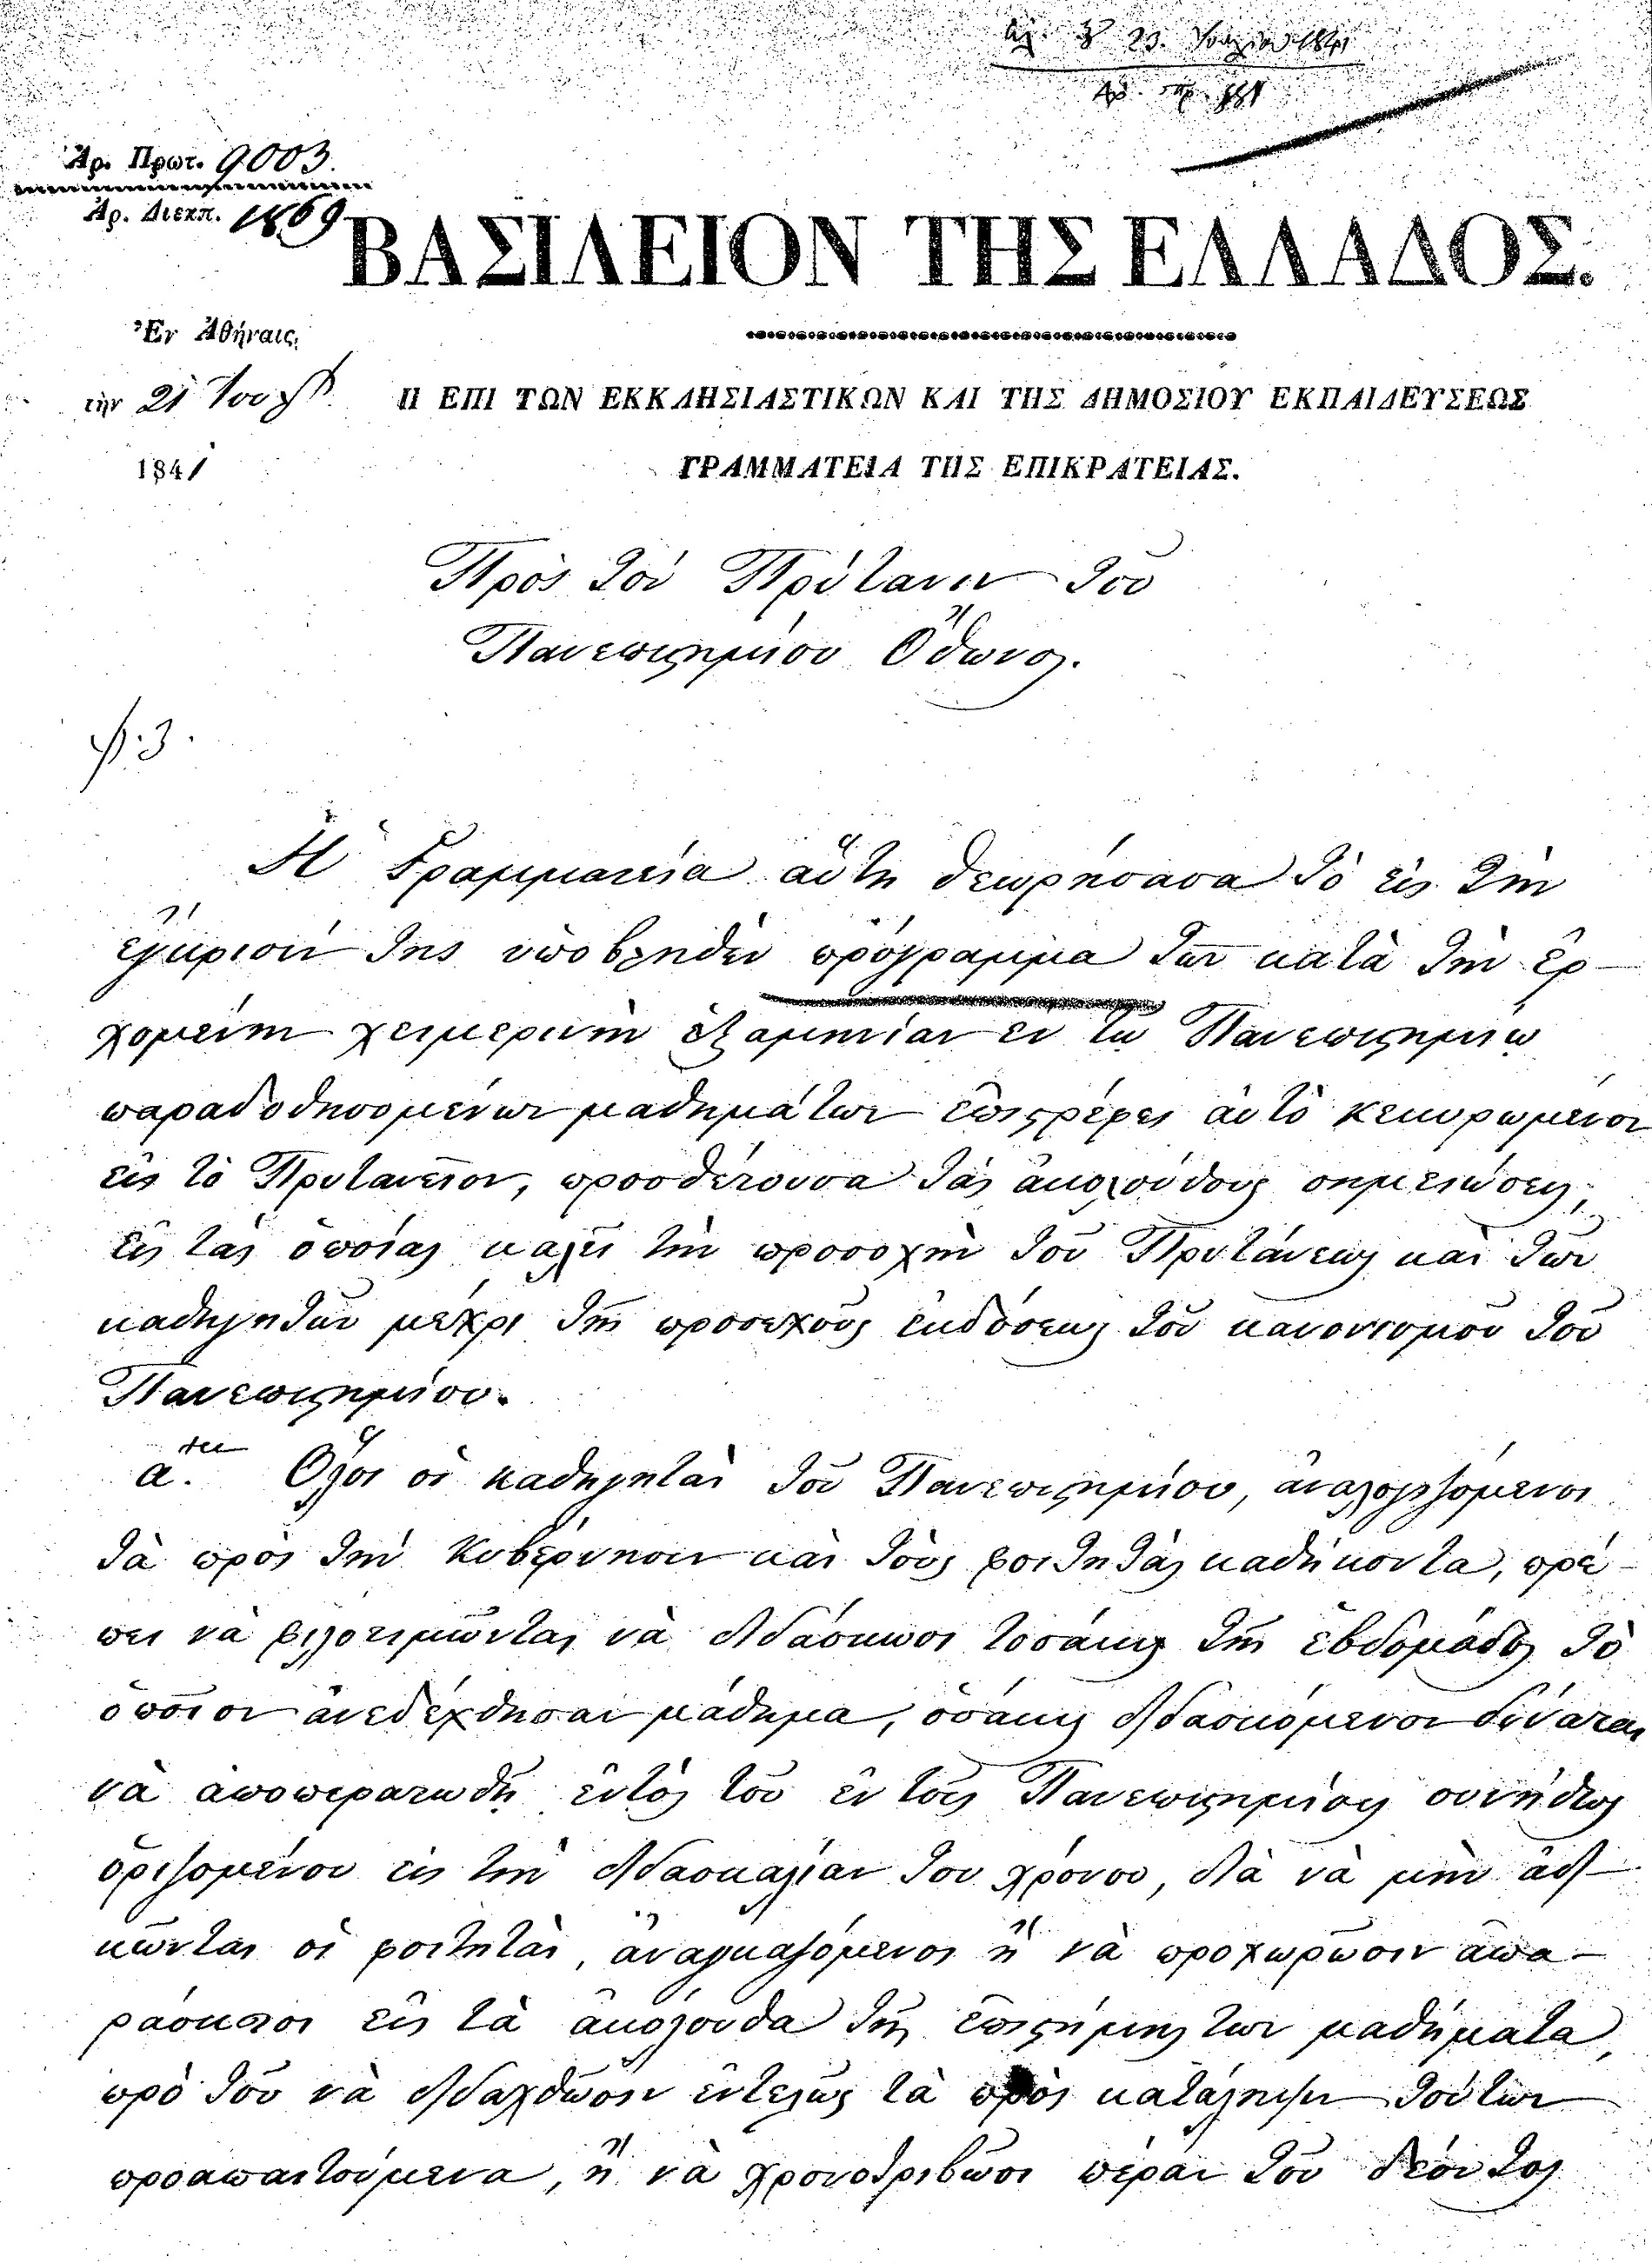 23. Ἰουλίου 1841
Ἀρ. Πρωτ. 9003.
Ἀρ. Διεκπ. 1869
ΒΑΣΙΛΕΙΟΝ ΤΗΣ ΕΛΛΑΔΟΣ.
Ἐν Ἀθήναις,
τὴν 21 Ἰουλ
Η ΕΠΙ ΤΩΝ ΕΚΚΛΗΣΙΑΣΤΙΚΩΝ ΚΑΙ ΤΗΣ ΔΗΜΟΣΙΟΥ ΕΚΠΑΙΔΕΥΣΕΩΣ
1841
ΓΡΑΜΜΑΤΕΙΑ ΤΗΣ ΕΠΙΚΡΑΤΕΙΑΣ.
Πρὸς τὸν Πρύτανιν τοῦ
Πανεπιςημίου Ὄθωνος.
Ἡ Γραμματεία αὕτη θεωρήσασα τὸ εἰς τὴν
ἔγκρισίν της ὑποβληθὲν πρόγραμμα τῶν κατὰ τὴν ἐρ-
χομένην χειμερινὴν ἑξαμηνίαν ἐν τῷ Πανεπιςημίῳ
παραδοθησομένων μαθημάτων ἐπιςρέφει αὐτὸ κεκυρωμένον
εἰς τὸ Πρυτανεῖον, προσθέτουσα τὰς ἀκολούθους σημειώσεις,
εἰς τὰς ὁποίας καλεῖ τὴν προσοχὴν τοῦ Πρυτάνεως καὶ τῶν
καθηγητῶν μέχρι τῆς προσεχοῦς ἐκδόσεως τοῦ κανονισμοῦ τοῦ
Πανεπιςημίου.
α. Ὅλοι οἱ καθηγηταὶ τοῦ Πανεπιςημίου, ἀναλογιζόμενοι
τὰ πρὸς τὴν Κυβέρνησιν καὶ τοὺς φοιτητὰς καθήκοντα, πρέ-
πει νὰ φιλοτιμῶνται νὰ διδάσκωσι τοσάκις τῆς ἑβδομάδος τὸ
ὁποῖον ἀνεδέχθησαν μάθημα, ὁσάκις διδασκόμενον δύναται
νὰ ἀποπερατωθῇ ἐντὸς τοῦ ἐν τοῖς Πανεπιςημίοις συνήθως
ὁριζομένου εἰς τὴν διδασκαλίαν του χρόνου, διὰ νὰ μὴν ἀδι-
κῶνται οἱ φοιτηταὶ, ἀναγκαζόμενοι ἢ νὰ προχωρῶσιν ἀπα-
ράσκευοι εἰς τὰ ἀκόλουθα τῆς ἐπιςήμης των μαθήματα,
πρὸ τοῦ νὰ διδαχθῶσιν ἐντελῶς τὰ πρὸς κατάληψιν τούτων
προαπαιτούμενα, ἢ νὰ χρονοτριβῶσι πέραν τοῦ δέοντος